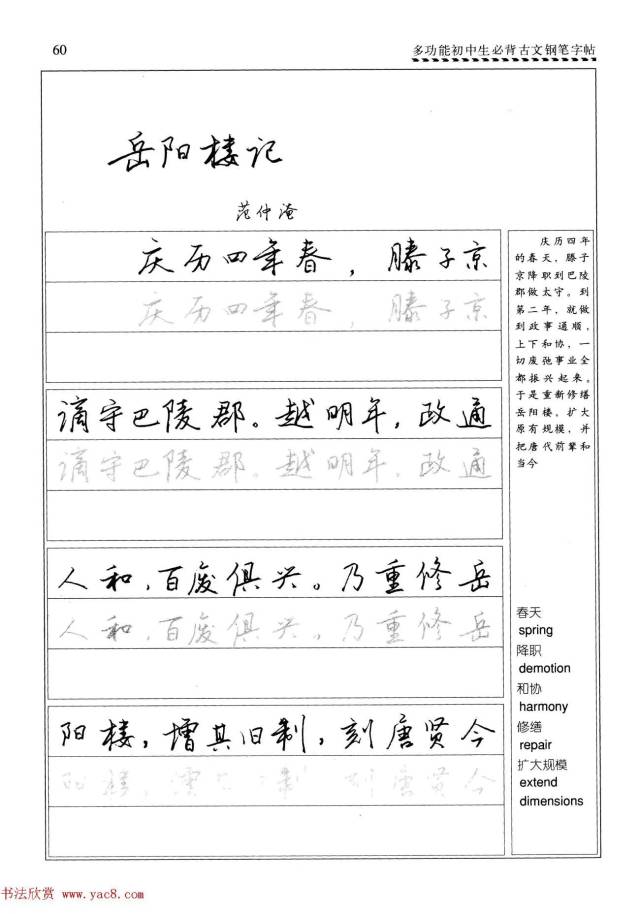 60
多功能初中生必背古文钢笔字帖
岳阳楼记
范仲淹
庆历四年春，滕子京
庆历四年春，滕子京
谪守巴陵郡。越明年，政通
谪守巴陵郡。越明年，政通
人和，百废俱兴。乃重修岳
人和，百废俱兴。乃重修岳
阳楼，增其旧制，刻唐贤今
阳楼，增其旧制，刻唐贤今
庆历四年
的春天，滕子
京降职到巴陵
郡做太守。到
第二年，就做
到政事通顺，
上下和协，一
切废弛事业全
都振兴起来。
于是重新修缮
岳阳楼。扩大
原有规模，并
把唐代前辈和
当今
春天
spring
降职
demotion
和协
harmony
修缮
repair
扩大规模
extend
dimensions
书法欣赏 www.yac8.com